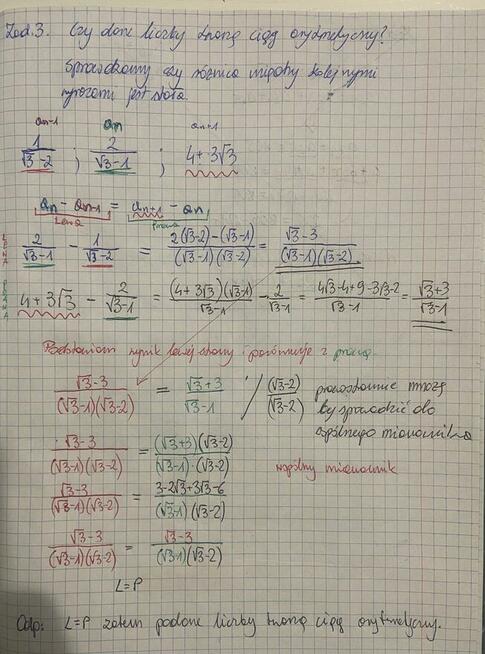 Zad. 3. Czy dane liczby tworzą ciąg arytmetyczny?
Sprawdzamy czy różnica między kolejnymi
wyrazami jest stała.
an-1 an an+1
1/(√3-2) ; 2/(√3-1) ; 4+3√3
an - an-1 = an+1 - an
Lewa Prawa
LEWA 2/(√3-1) - 1/(√3-2) = (2(√3-2)-(√3-1))/((√3-1)(√3-2)) = (√3-3)/((√3-1)(√3-2))
PRAWA 4+3√3 - 2/(√3-1) = ((4+3√3)(√3-1))/(√3-1) - 2/(√3-1) = (4√3-4+9-3√3-2)/(√3-1) = (√3+3)/(√3-1)
Podstawiam wynik lewej strony i porównuje z prawą.
(√3-3)/((√3-1)(√3-2)) = (√3+3)/(√3-1) / (√3-2)/(√3-2) prawostronnie mnożę
by sprowadzić do
wspólnego mianownika
(√3-3)/((√3-1)(√3-2)) = ((√3+3)(√3-2))/((√3-1)·(√3-2)) wspólny mianownik
(√3-3)/((√3-1)(√3-2)) = (3-2√3+3√3-6)/((√3-1)(√3-2))
(√3-3)/((√3-1)(√3-2)) = (√3-3)/((√3-1)(√3-2))
L=P
Odp: L=P zatem podane liczby tworzą ciąg arytmetyczny.